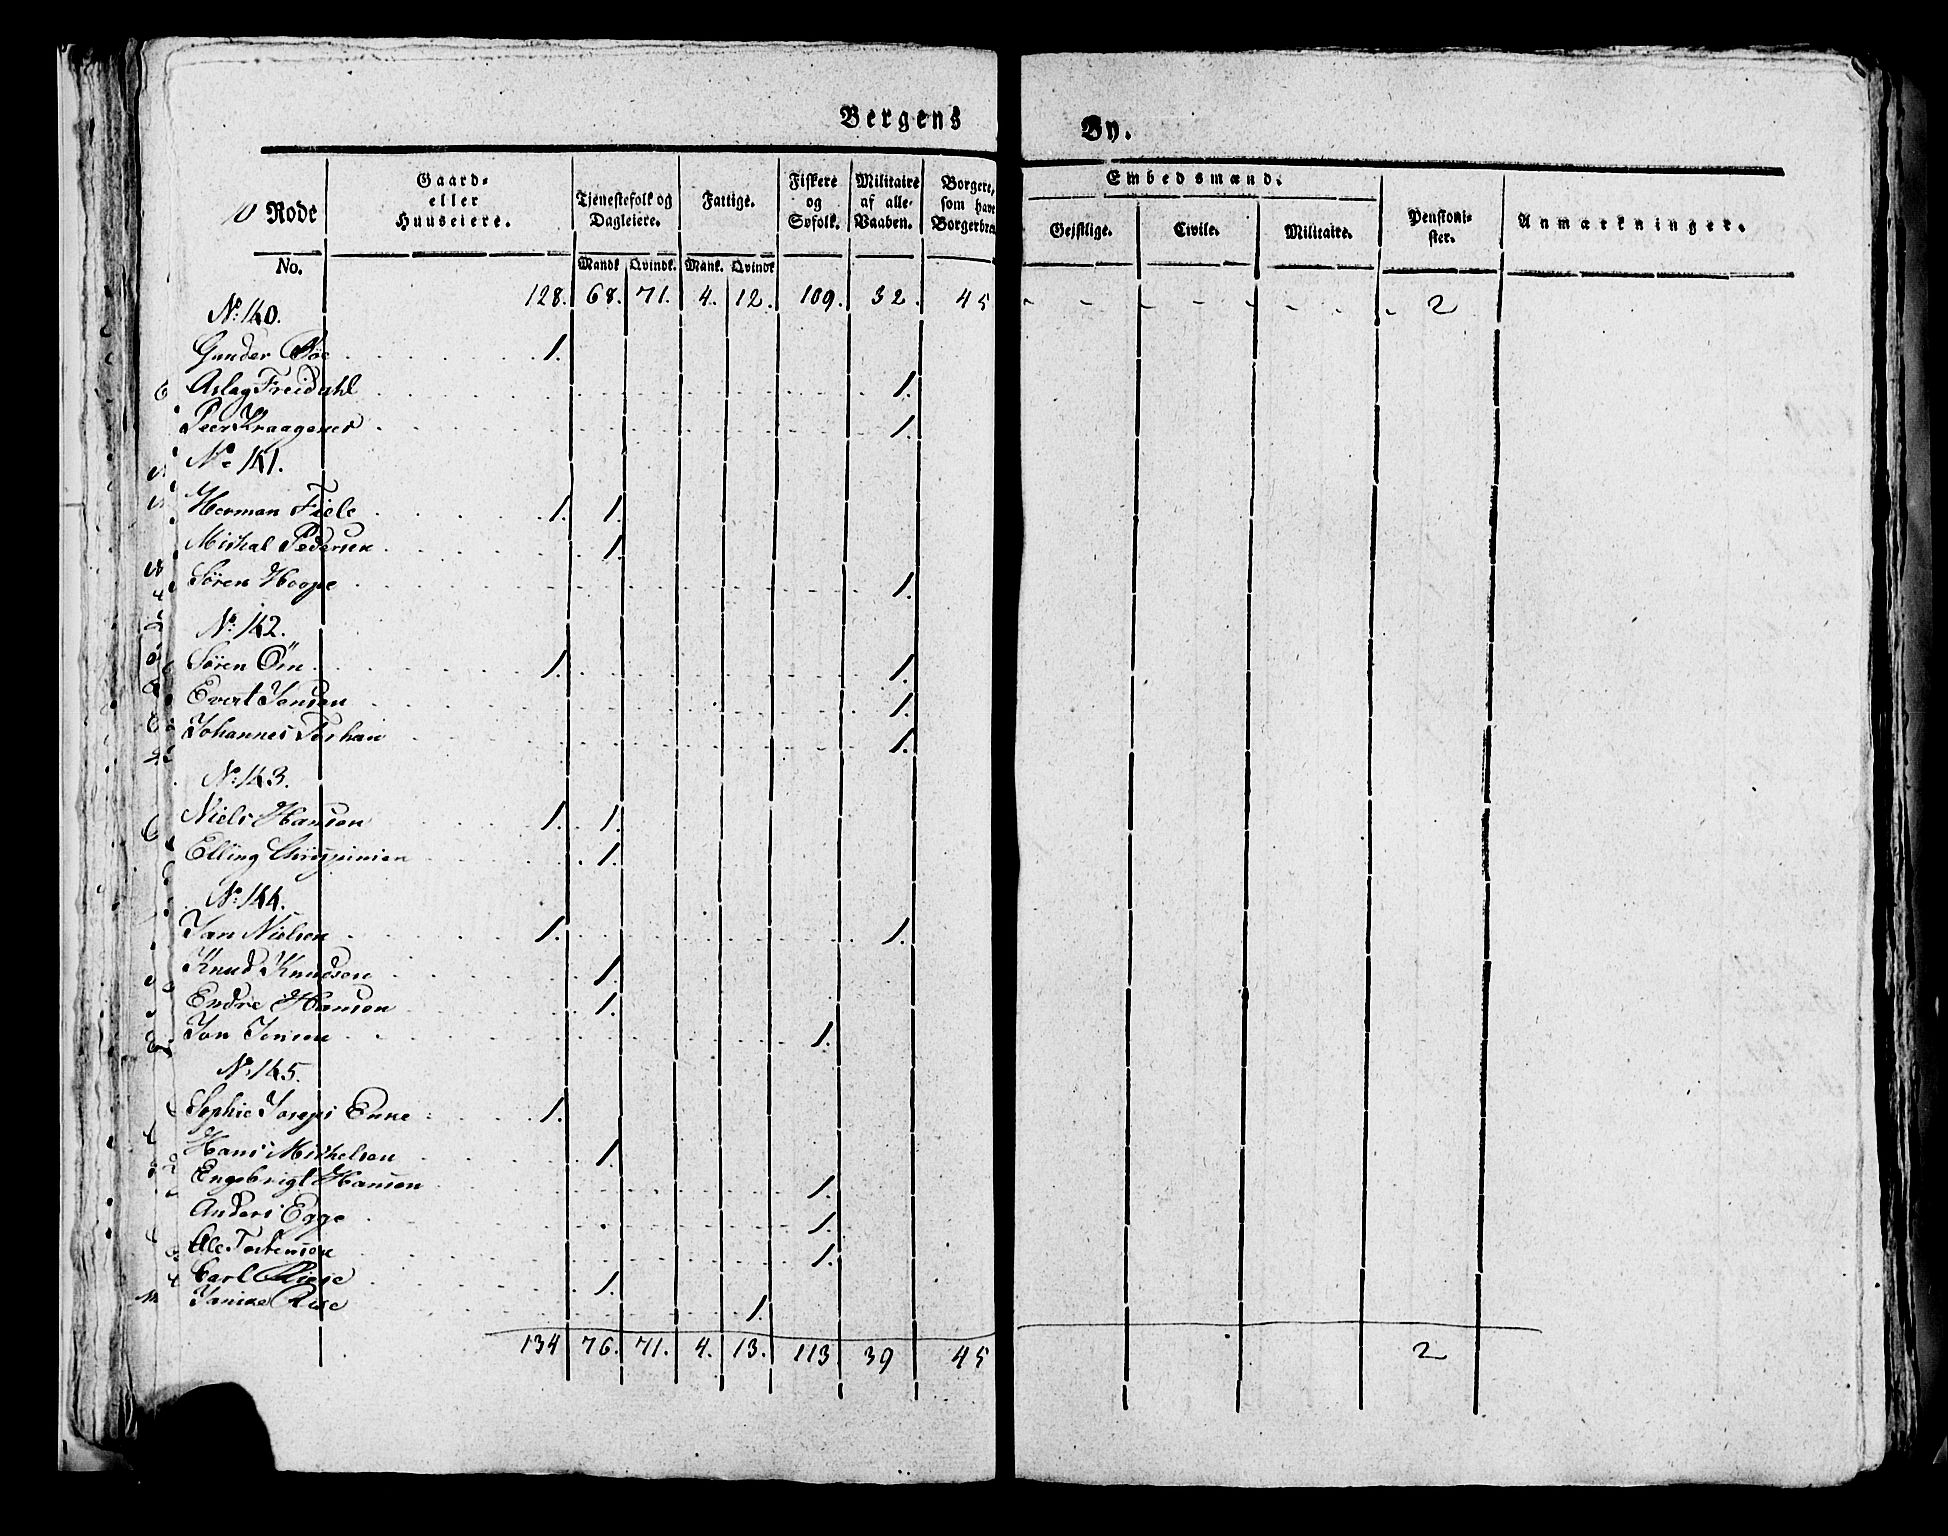 Bergens By.
10 Rode
No.
Gaard- eller Huuseiere.
Tjenestefolk og Dagleiere.
Mandk. Qvindk.
Fattige.
Mank. Qvindk
Fiskere og Søfolk.
Militaire af alle Vaaben.
Borgere, som have Borgerbre
Embedsmænd.
Gejstlige. Civile. Militaire.
Pensioni- ster.
Anmærkninger.
128. 68. 71. 4. 12. 109. 32. 45 2
No. 140.
Gunder Bøe 1.
Aslag Freidahl 1.
Peer Kraagenes 1.
No 141.
Herman Fiele 1. 1.
Michal Pedersen 1.
Søren Hoope 1.
No. 142.
Søren Öin 1. 1.
Evert Jonsen 1.
Johannes 1.
No. 143.
Niels Hansen 1. 1.
Elling 1.
No. 144.
Jan Nielsen 1. 1.
Knud Knudsen 1.
Endre Hansen 1.
Jon Jensen 1.
No. 145.
Sophie Enke 1.
Hans Michelsen 1.
Engebrigt Hansen 1.
Anders Egge 1.
Ole Torstensen 1.
Carl 1.
1.
134 76. 71. 4. 13. 113 39 45 2